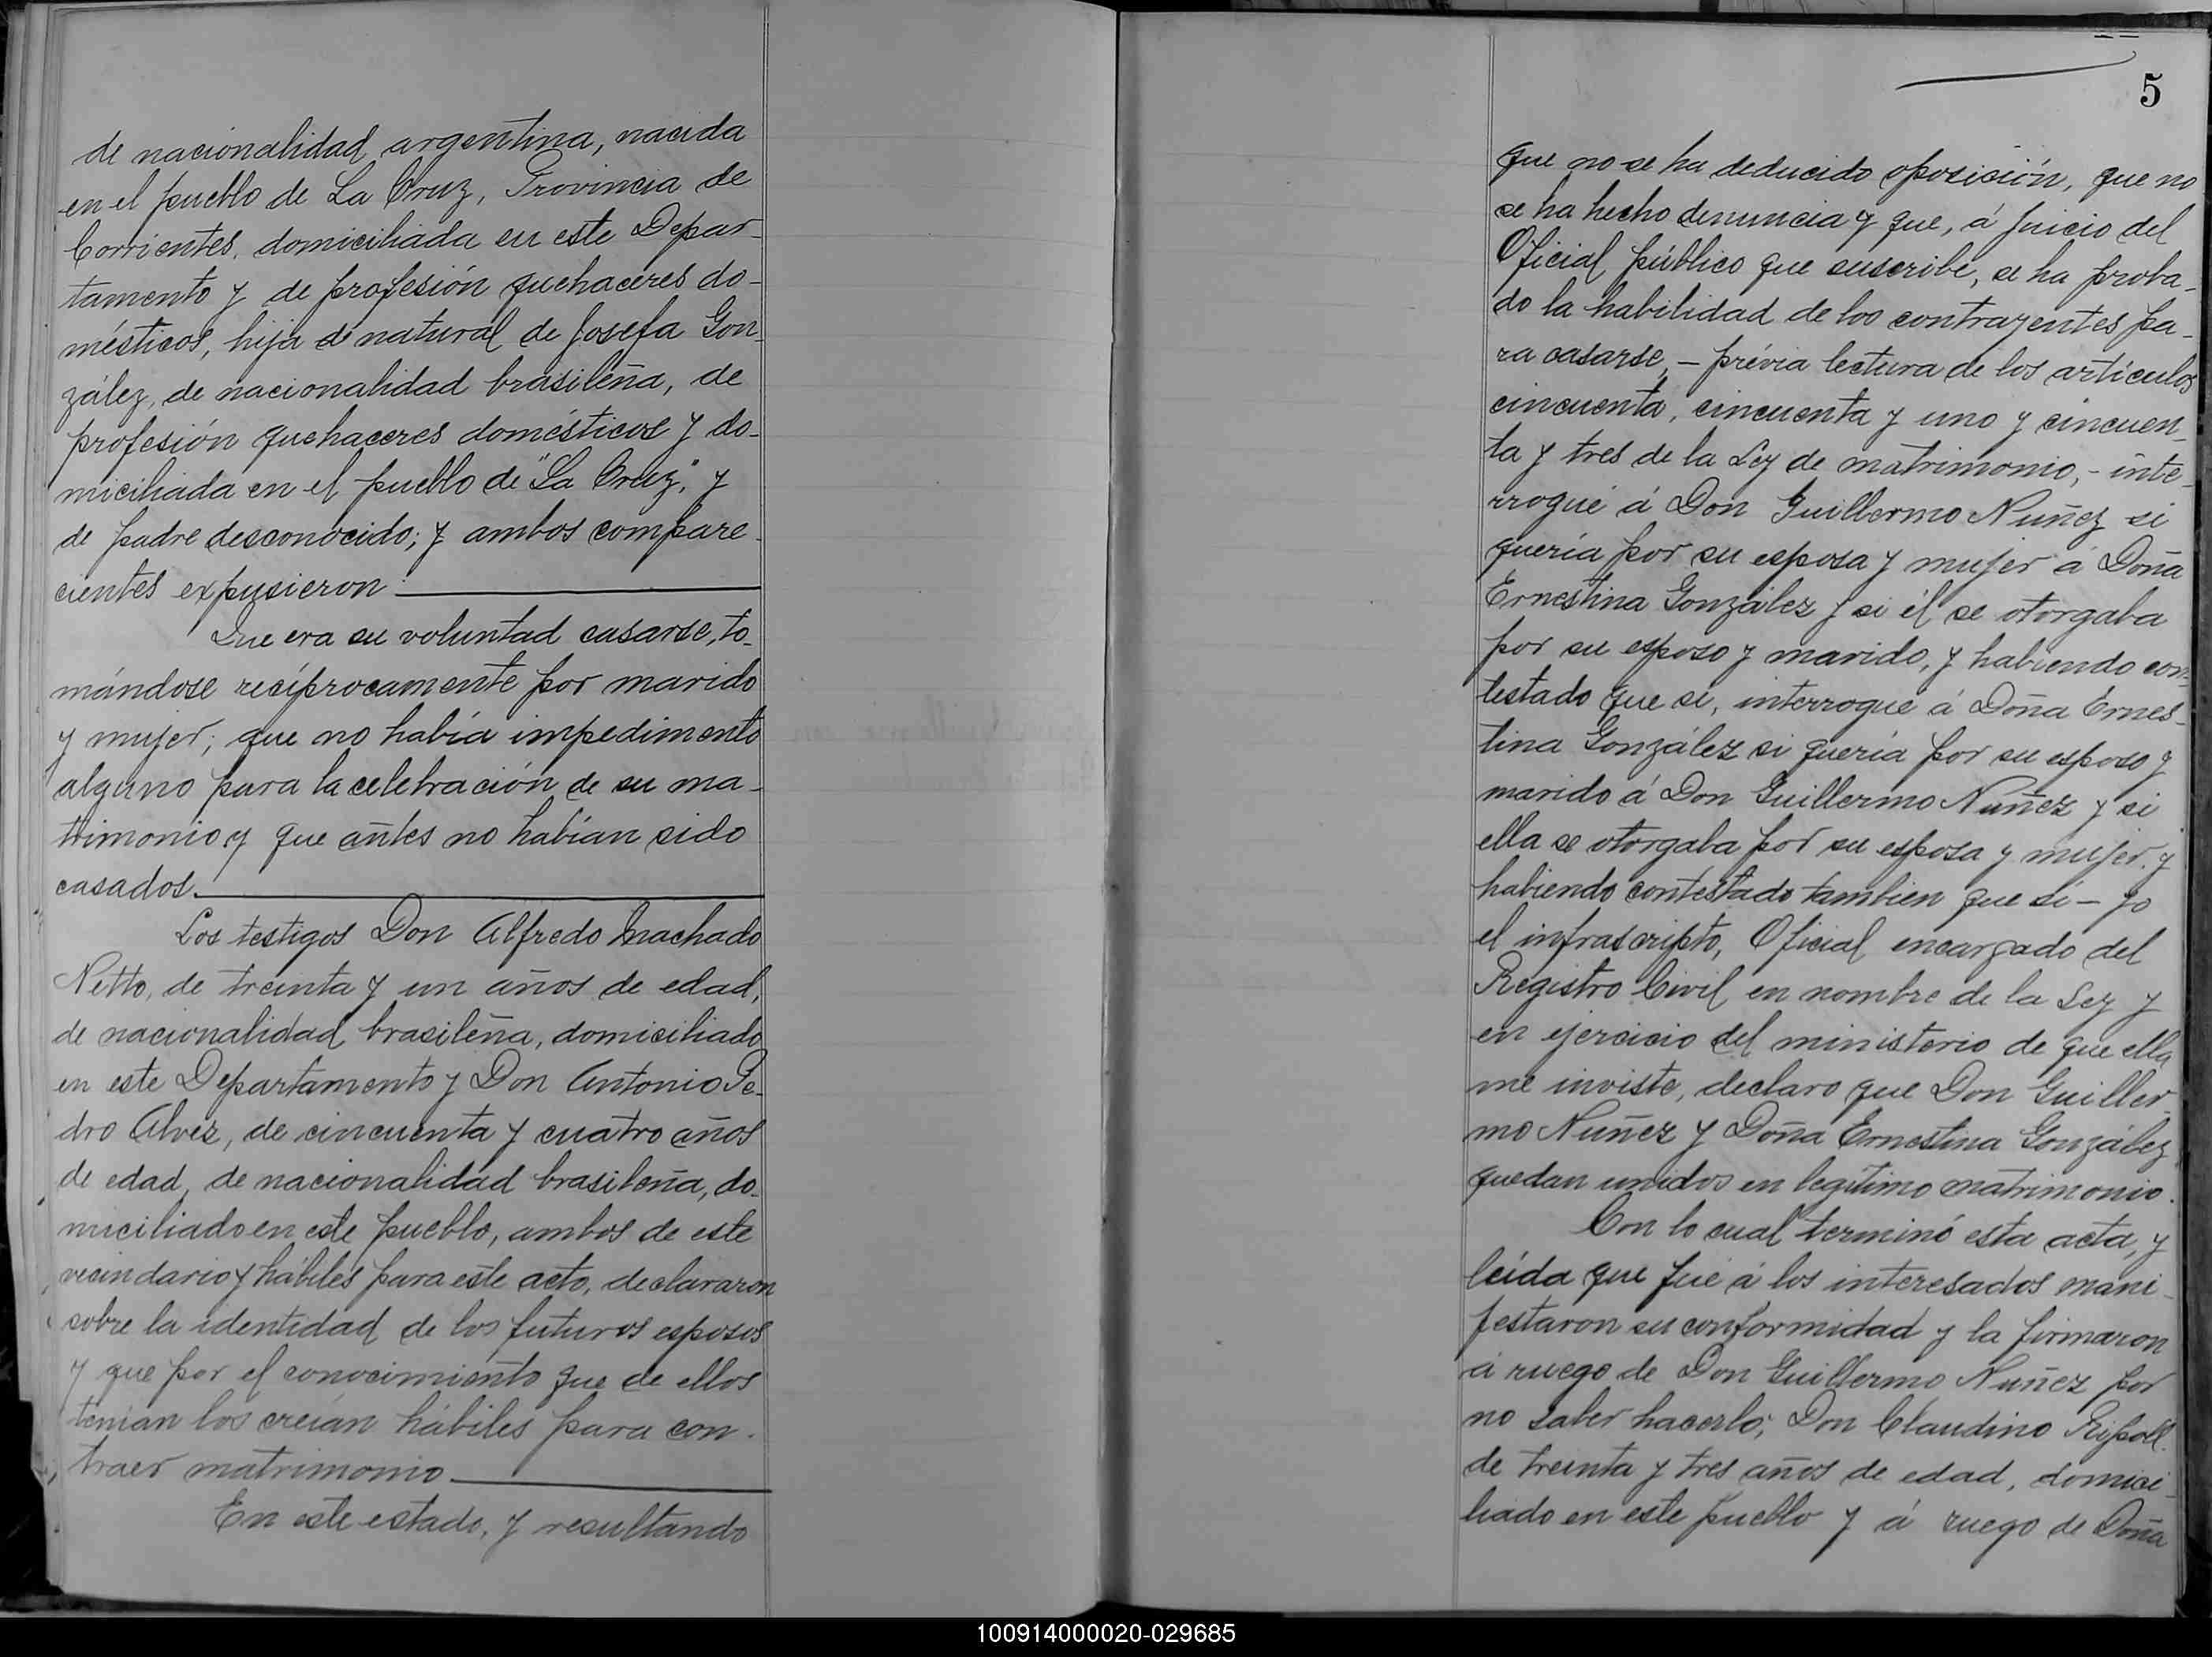 de nacionalidad argentina, nacida
en el pueblo de La Cruz, Provincia de
Corrientes, domiciliada en este Depar-
tamento y de profesión quehaceres do-
mésticos, hija natural de Josefa Gon-
zález, de nacionalidad brasileña, de
profesión quehaceres domésticos y do-
miciliada en el pueblo de "La Cruz", y
de padre desconocido; y ambos compare-
cientes expusieron:
Que era su voluntad casarse, to-
mándose recíprocamente por marido
y mujer; que no había impedimento
alguno para la celebración de su ma-
trimonio y que antes no habían sido
casados.
Los testigos Don Alfredo Machado
Netto, de treinta y un años de edad,
de nacionalidad brasileña, domiciliado
en este Departamento y Don Antonio Pe-
dro Alvez, de cincuenta y cuatro años
de edad, de nacionalidad brasileña, do-
miciliado en este pueblo, ambos de este
vecindario y hábiles para este acto, declararon
sobre la identidad de los futuros esposos
y que por el conocimiento que de ellos
tenían los creían hábiles para con-
traer matrimonio.
En este estado, y resultando
5
que no se ha deducido oposición, que no
se ha hecho denuncia y que, á juicio del
Oficial público que suscribe, se ha proba-
do la habilidad de los contrayentes pa-
ra casarse, - prévia lectura de los artículos
cincuenta, cincuenta y uno y cincuen-
ta y tres de la Ley de matrimonio, - inte-
rrogué á Don Guillermo Nuñez si
quería por su esposa y mujer á Doña
Ernestina González y si él se otorgaba
por su esposo y marido, y habiendo con-
testado que sí, interrogué á Doña Ernes-
tina González si quería por su esposo y
marido á Don Guillermo Nuñez y si
ella se otorgaba por su esposa y mujer, y
habiendo contestado tambien que sí - yo
el infrascripto, Oficial encargado del
Registro Civil en nombre de la Ley y
en ejercicio del ministerio de que ella
me inviste, declaro que Don Guiller-
mo Nuñez y Doña Ernestina González
quedan unidos en legítimo matrimonio.
Con lo cual terminó esta acta, y
leída que fué á los interesados mani-
festaron su conformidad y la firmaron
á ruego de Don Guillermo Nuñez por
no saber hacerlo; Don Claudino Ripoll
de treinta y tres años de edad, domici-
liado en este pueblo y á ruego de Doña
100914000020-029685